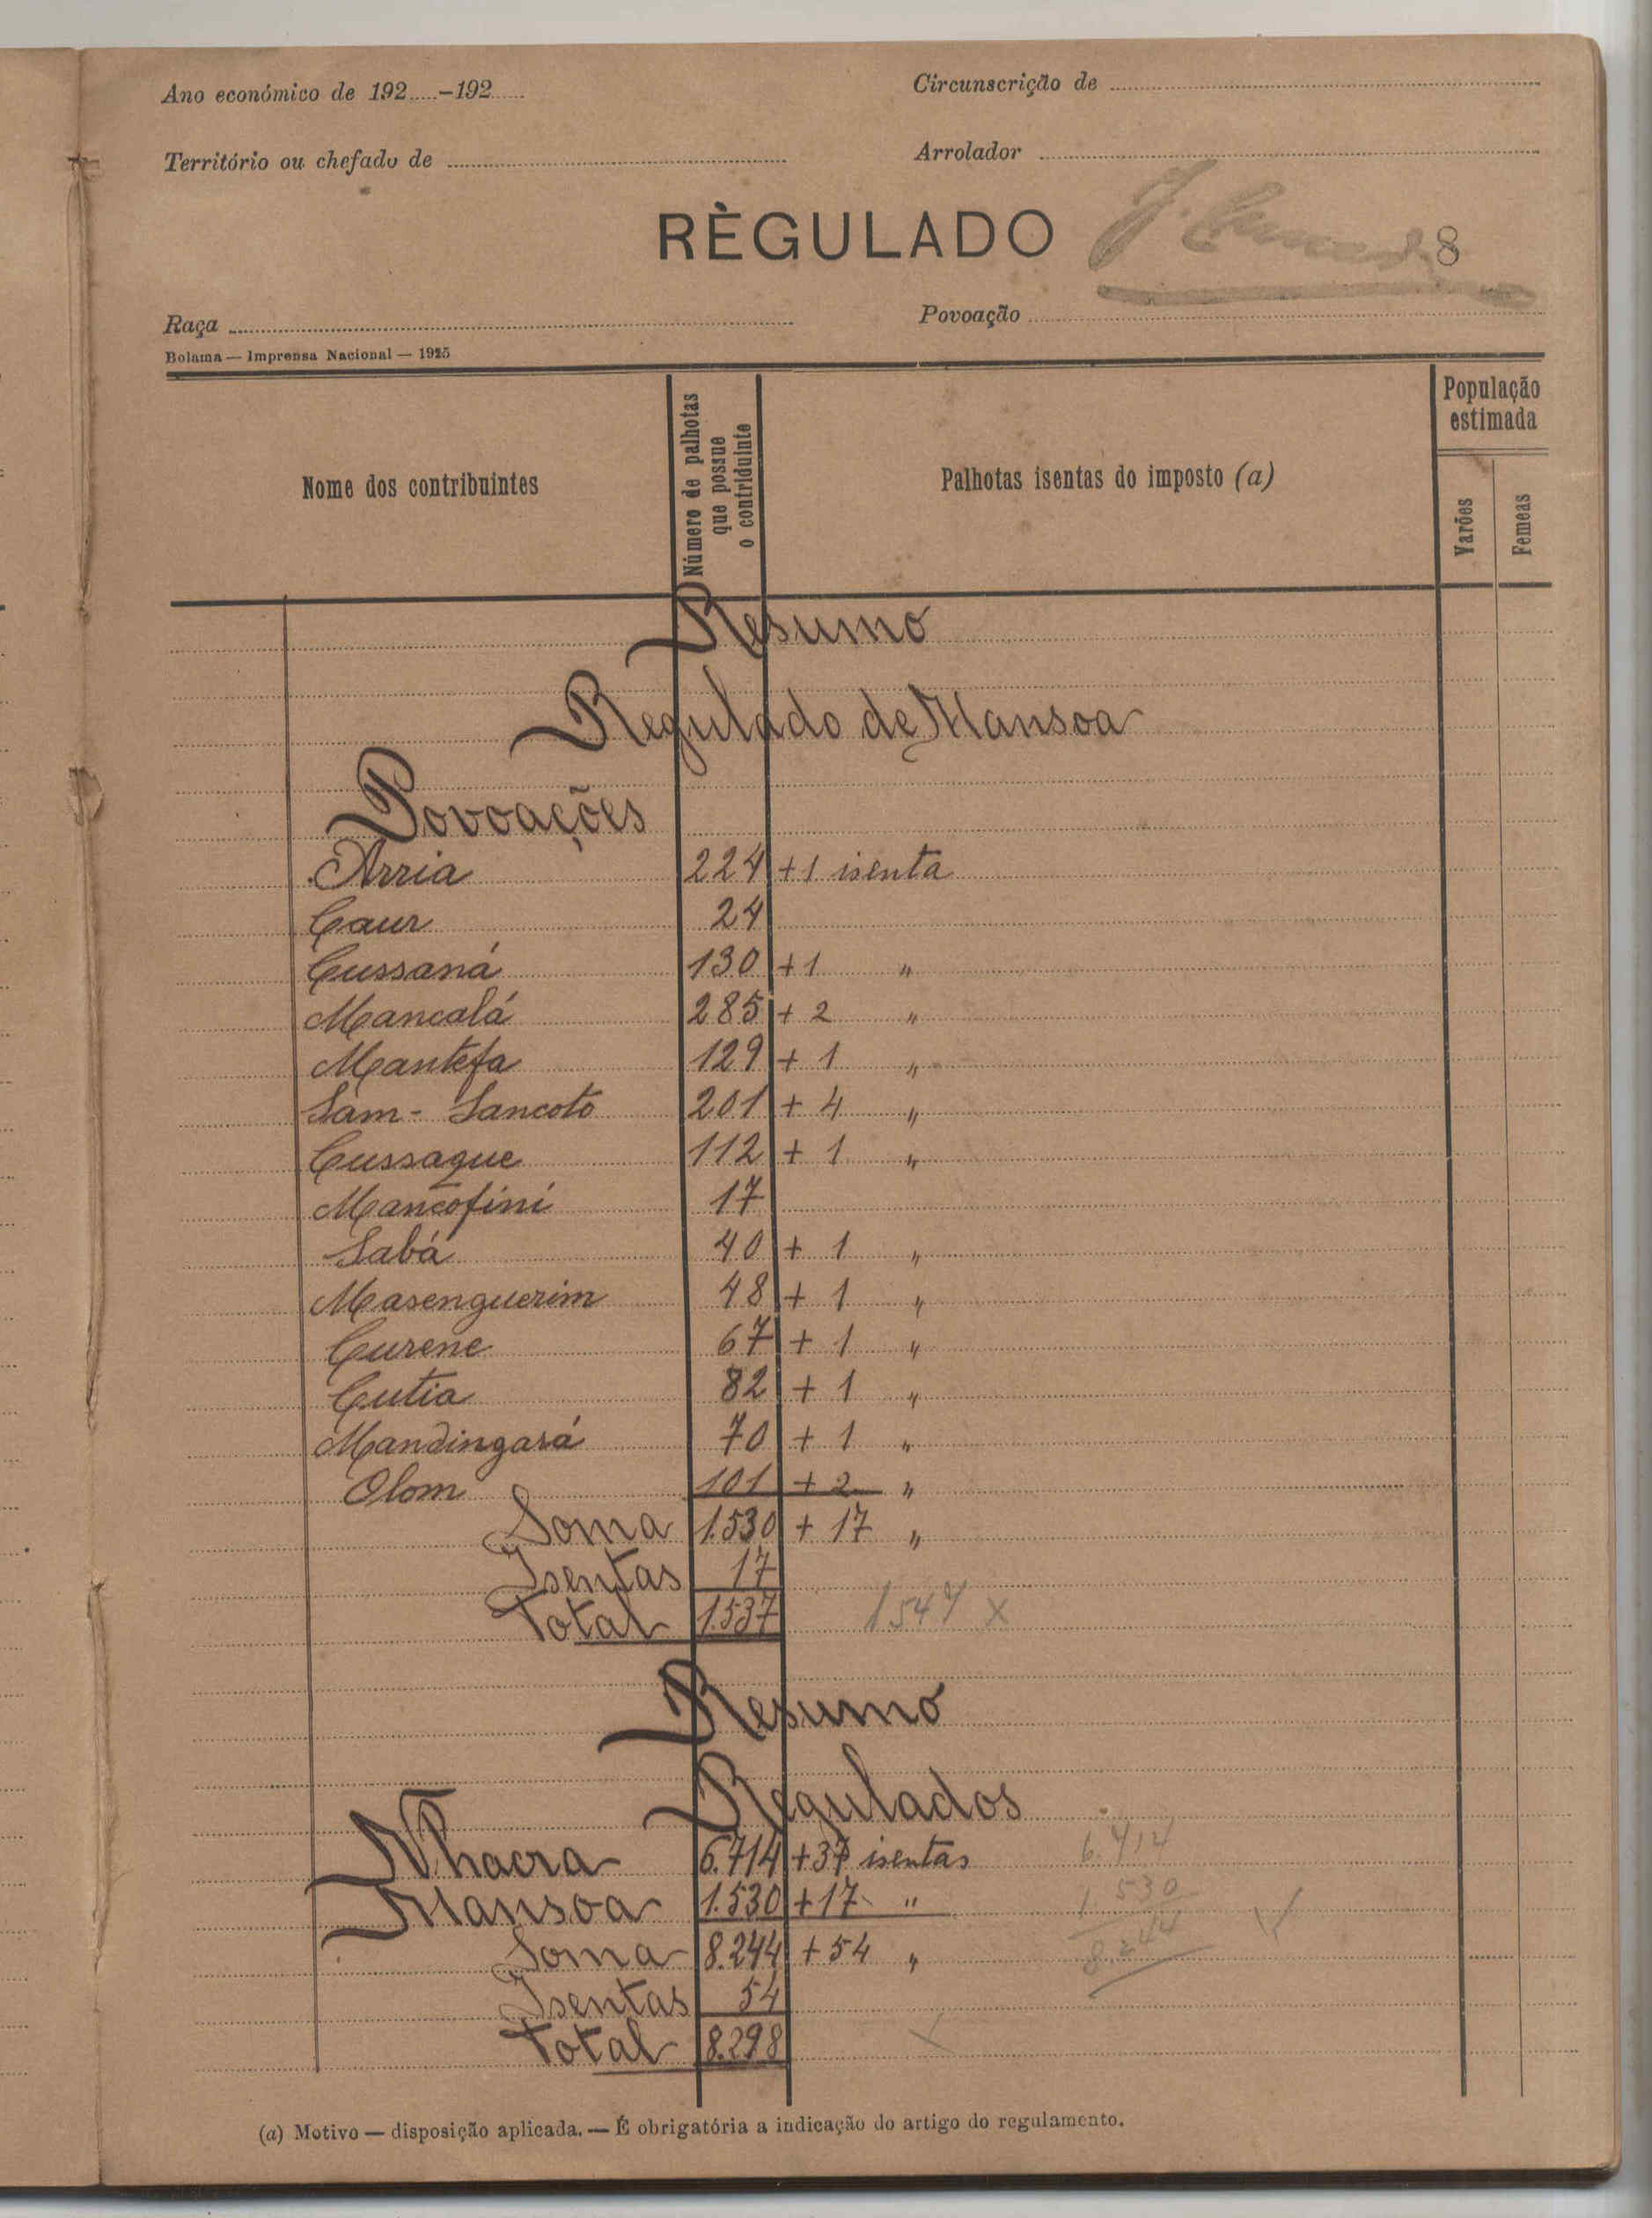 Ano económico de 192.....-192......
Circunscrição de
Território ou chefado de
Arrolador
RÈGULADO
8
Raça
Povoação
Bolama — Imprensa Nacional — 1925
Nome dos contribuintes
Número de palhotas que possue o contriduinte
Palhotas isentas do imposto (a)
População estimada
Varões
Femeas
Resumo
Regulado de Mansoa
Povoações
Arria 224 +1 isenta
Caur 24
Cussaná 130 +1 "
Mancalá 285 + 2 "
Mantefa 129 + 1 "
Sam-Sancoto 201 + 4 "
Cussaque 112 + 1 "
Mancofini 17
Sabá 40 + 1 "
Masenguerim 48 + 1 "
Curene 67 + 1 "
Cutia 82 + 1 "
Mandingará 70 + 1 "
Olom 101 + 2 "
Soma 1.530 + 17 "
Isentas 17
Total 1.537 1547 x
Resumo
Regulados
Nhacra 6.714 +37 isentas 6.714
Mansoa 1.530 +17 " 1.530
Soma 8.244 + 54 " 8.244
Isentas 54
Total 8.298
(a) Motivo — disposição aplicada. — É obrigatória a indicação do artigo do regulamento.